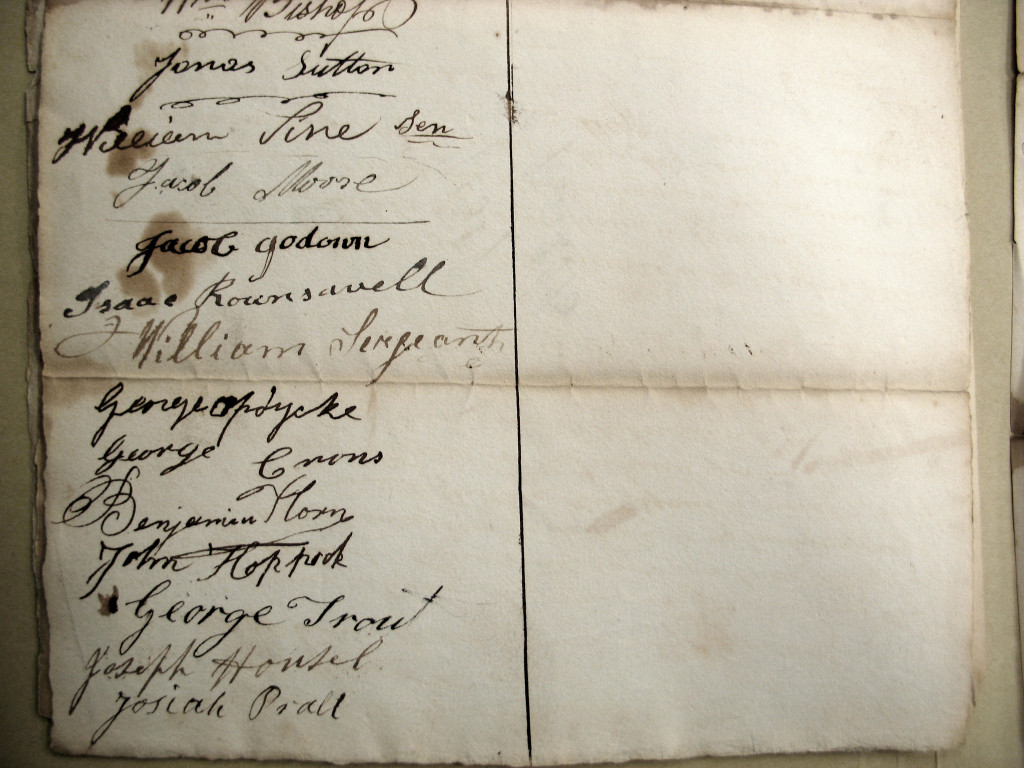 Wm Bishop
Jonas Sutton
William Pine Sen
Jacob Moore
Jacob godown
Isaac Rounsavell
William Sergeant
George opdycke
George Crons
Benjamin Horn
John Hoppock
George Trout
Joseph Housel
Josiah Prall